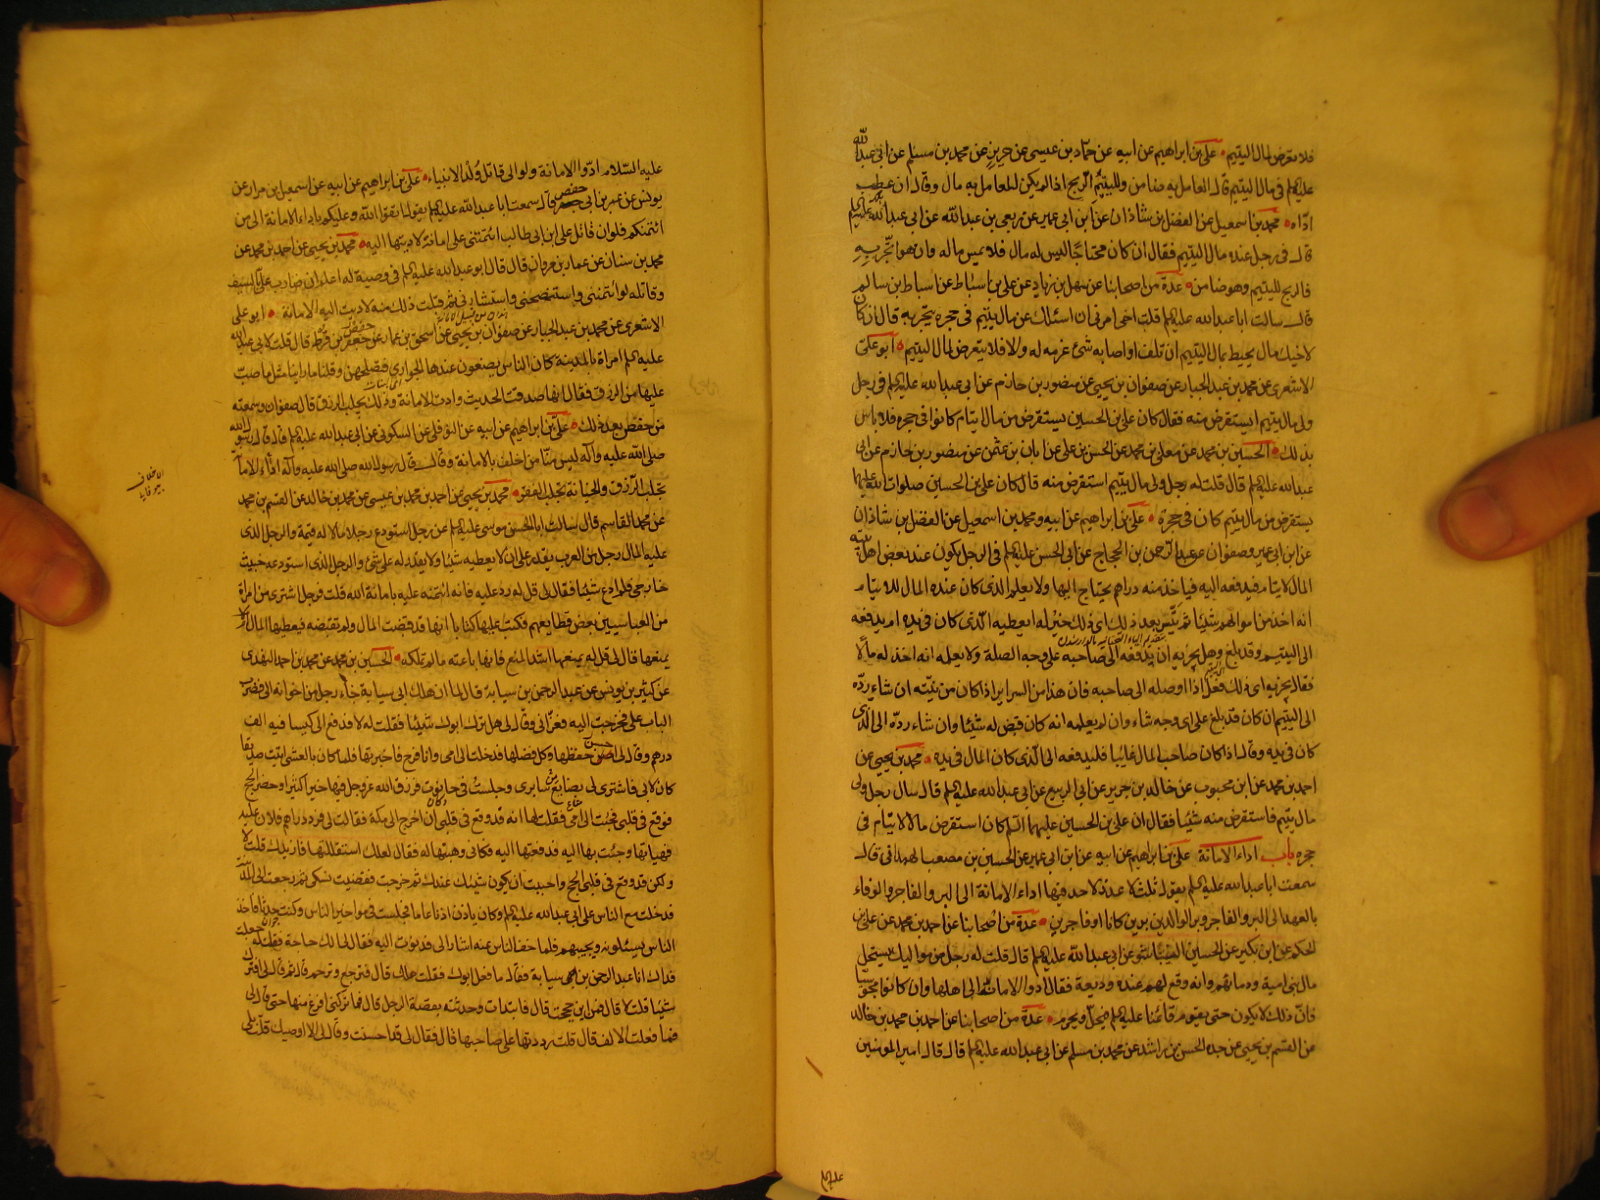 فلا يعرض لمال اليتيم علي بن ابراهيم عن ابيه عن حماد بن عيسى عن حريز عن محمد بن مسلم عن ابي عبد الله
عليه السلم في مال اليتيم قال العامل به ضامن ولليتيم الربح اذا لم يكن للعامل به مال وقال ان عطب
اداه محمد بن اسمعيل عن الفضل بن شاذان عن ابن ابي عمير عن ربعي بن عبد الله عن ابي عبد الله عليه السلم
قال في رجل عنده مال اليتيم فقال ان كان محتاجا ليس له مال فلا يمس ماله وان هو اتجر به
فالربح لليتيم وهو ضامن عدة من اصحابنا عن سهل بن زياد عن علي بن اسباط عن اسباط بن سالم
قال سالت ابا عبد الله عليه السلم قلت اخي امرني ان اسئلك عن مال يتيم في حجره يتجر به قال ان كان
لاخيك مال يحيط بمال اليتيم ان تلف او اصابه شئ غرمه له والا فلا يتعرض لمال اليتيم ابو علي
الاشعري عن محمد بن عبد الجبار عن صفوان بن يحيى عن منصور بن حازم عن ابي عبد الله عليه السلم في رجل
ولى مال يتيم ايستقرض منه فقال كان علي بن الحسين يستقرض من مال يتام كانوا في حجره فلا باس
بذلك الحسين بن محمد عن معلى بن محمد عن الحسن بن علي عن ابان بن عثمن عن منصور بن حازم عن ابي
عبد الله عليه السلم قال قلت له رجل ولى مال يتيم استقرض منه قال كان علي بن الحسين صلوات الله عليهما
يستقرض من مال يتيم كان في حجره علي بن ابراهيم عن ابيه ومحمد بن اسمعيل عن الفضل بن شاذان
عن ابن ابي عمير وصفوان عن عبد الرحمن بن الحجاج عن ابي الحسن عليه السلم في الرجل يكون عند بعض اهل بيته
المال لايتام فيدفعه اليه فياخذ منه دراهم يحتاج اليها ولا يعلم الذي كان عنده المال للايتام
انه اخذ من اموالهم شيئا ثم تيسر بعد ذلك اي ذلك خير له ايعطيه الذي كان في يده ام يدفعه
الى اليتيم وقد بلغ وهل يجزيه ان يدفعه الى صاحبه على وجه الصلة ولا يعلمه انه اخذ له مالا
فقال يجزيه اي ذلك فعل اذا اوصله الى صاحبه فان هذا من السراير اذا كان من نيته ان شاء رده
الى اليتيم ان كان قد بلغ على اي وجه شاء وان لم يعلمه انه كان قبض له شيئا وان شاء رده الى الذي
كان في يده وقال اذا كان صاحب المال غايبا فليدفعه الى الذي كان المال في يده محمد بن يحيى عن
احمد بن محمد عن ابن محبوب عن خالد بن جرير عن ابي الربيع عن ابي عبد الله عليه السلم قال سال رجل ولى
مال يتيم فاستقرض منه شيئا فقال ان علي بن الحسين عليهما السلم كان استقرض مالا لايتام في
حجره باب اداء الامانة علي بن ابراهيم عن ابيه عن ابن ابي عمير عن الحسين بن مصعب الهمداني قال
سمعت ابا عبد الله عليه السلم يقول ثلثة لا عذر لاحد فيها اداء الامانة الى البر والفاجر والوفاء
بالعهد الى البر والفاجر وبر الوالدين برين كانا او فاجرين عدة من اصحابنا عن احمد بن محمد عن علي بن
الحكم عن ابن بكير عن الحسين الشيباني عن ابي عبد الله عليه السلم قال قلت له رجل من مواليك يستحل
مال بني امية ودمائهم وانه وقع لهم عنده وديعة فقال ادوا الامانة الى اهلها وان كانوا مجوسيا
فان ذلك لا يكون حتى يقوم قائمنا عليه السلم فيحل ويحرم عدة من اصحابنا عن احمد بن محمد بن خالد
عن القسم بن يحيى عن جده الحسن بن راشد عن محمد بن مسلم عن ابي عبد الله عليه السلم قال قال امير المومنين
عليه السلم
عليه السلام ادوا الامانة ولو الى قاتل ولد الانبياء علي بن ابراهيم عن ابيه عن اسمعيل بن مرار عن
يونس عن عمر بن ابي حفص قال سمعت ابا عبد الله عليه السلم يقول اتقوا الله وعليكم باداء الامانة الى من
ائتمنكم فلو ان قاتل علي بن ابي طالب ائتمنني على امانة لاديتها اليه محمد بن يحيى عن احمد بن محمد عن
محمد بن سنان عن عمار بن مروان قال قال ابو عبد الله عليه السلم في وصية له اعلم ان ضارب علي بالسيف
وقاتله لو ائتمنني واستنصحني واستشارني ثم قبلت ذلك منه لاديت اليه الامانة ابو علي
الاشعري عن محمد بن عبد الجبار عن صفوان بن يحيى عن اسحق بن عمار عن حفص بن قرط قال قلت لابي عبد الله
عليه السلم امراة بالمدينة كان الناس يضعون عندها الجواري فتصلحهن وقلنا ما راينا مثل ما صب
عليها من الرزق فقال انها صدقت الحديث وادت الامانة وذلك يجلب الرزق قال صفوان وسمعته
من حفص بعد ذلك علي بن ابراهيم عن ابيه عن النوفلي عن السكوني عن ابي عبد الله عليه السلم قال قال رسول الله
صلى الله عليه وآله ليس منا من اخلف بالامانة وقال قال رسول الله صلى الله عليه وآله اداء الامانة
تجلب الرزق والخيانة تجلب الفقر محمد بن يحيى عن احمد بن محمد بن عيسى عن محمد بن خالد عن القسم بن محمد
عن محمد القاسم قال سالت ابا الحسن موسى عليه السلم عن رجل استودع رجلا مالا له قيمة والرجل الذي
عليه المال رجل من العرب يقدر على ان لا يعطيه شيئا ولا يقدر له على شئ والرجل الذي استودعه خبيث
خارجي فلم ادع شيئا فقال لي قل له رد عليه فانه ائتمنه عليه بامانة الله قلت فرجل اشترى من امراة
من العباسيين بعض قطايعهم فكتب عليها كتابا انها قد قبضت المال ولم تقبضه فيعطيها المال ام لا
يمنعها قال لي قل له يمنعها اشد المنع فانها باعته ما لم تملكه الحسين بن محمد عن محمد بن احمد النهدي
عن كثير بن يونس عن عبد الرحمن بن سيابة قال لما ان هلك ابي سيابة جاء رجل من اخوانه الي فضرب
الباب علي فخرجت اليه فعزاني وقال لي هل ترك ابوك شيئا فقلت له لا فدفع الي كيسا فيه الف
درهم وقال لي احسن حفظها وكل فضلها فدخلت الى امي وانا فرح فاخبرتها فلما كان بالعشي اتيت صديقا
كان لابي فاشترى لي بضايع سابري وجلست في حانوت فرزق الله عز وجل فيها خيرا كثيرا وحضر الحج
فوقع في قلبي فجئت الى امي فقلت لها انه قد وقع في قلبي ان اخرج الى مكة فقالت لي فرد دراهم فلان عليه
فهياتها وجئت بها اليه فدفعتها اليه فكاني وهبتها له فقال لعلك استقللتها فازيدك قلت لا
ولكن قد وقع في قلبي الحج واحببت ان يكون شيئك عندك ثم خرجت فقضيت نسكي ثم رجعت الى المدينة
فدخلت مع الناس على ابي عبد الله عليه السلم وكان ياذن اذنا عاما فجلست في مواخير الناس وكنت حدثا فاخذ
الناس يسئلونه ويجيبهم فلما خف الناس عنه اشار الي فدنوت اليه فقال لي الك حاجة فقلت له جعلت
فداك انا عبد الرحمن بن سيابة فقال ما فعل ابوك فقلت هلك قال فتوجع وترحم قال ثم قال لي افترك
شيئا قلت لا قال فمن اين حججت قال فابتدات وحدثته بقصة الرجل قال فما تركني افرغ منها حتى قال لي
فما فعلت الالف قال قلت رددتها على صاحبها قال فقال لي قد احسنت وقال لي الا اوصيك قلت بلى